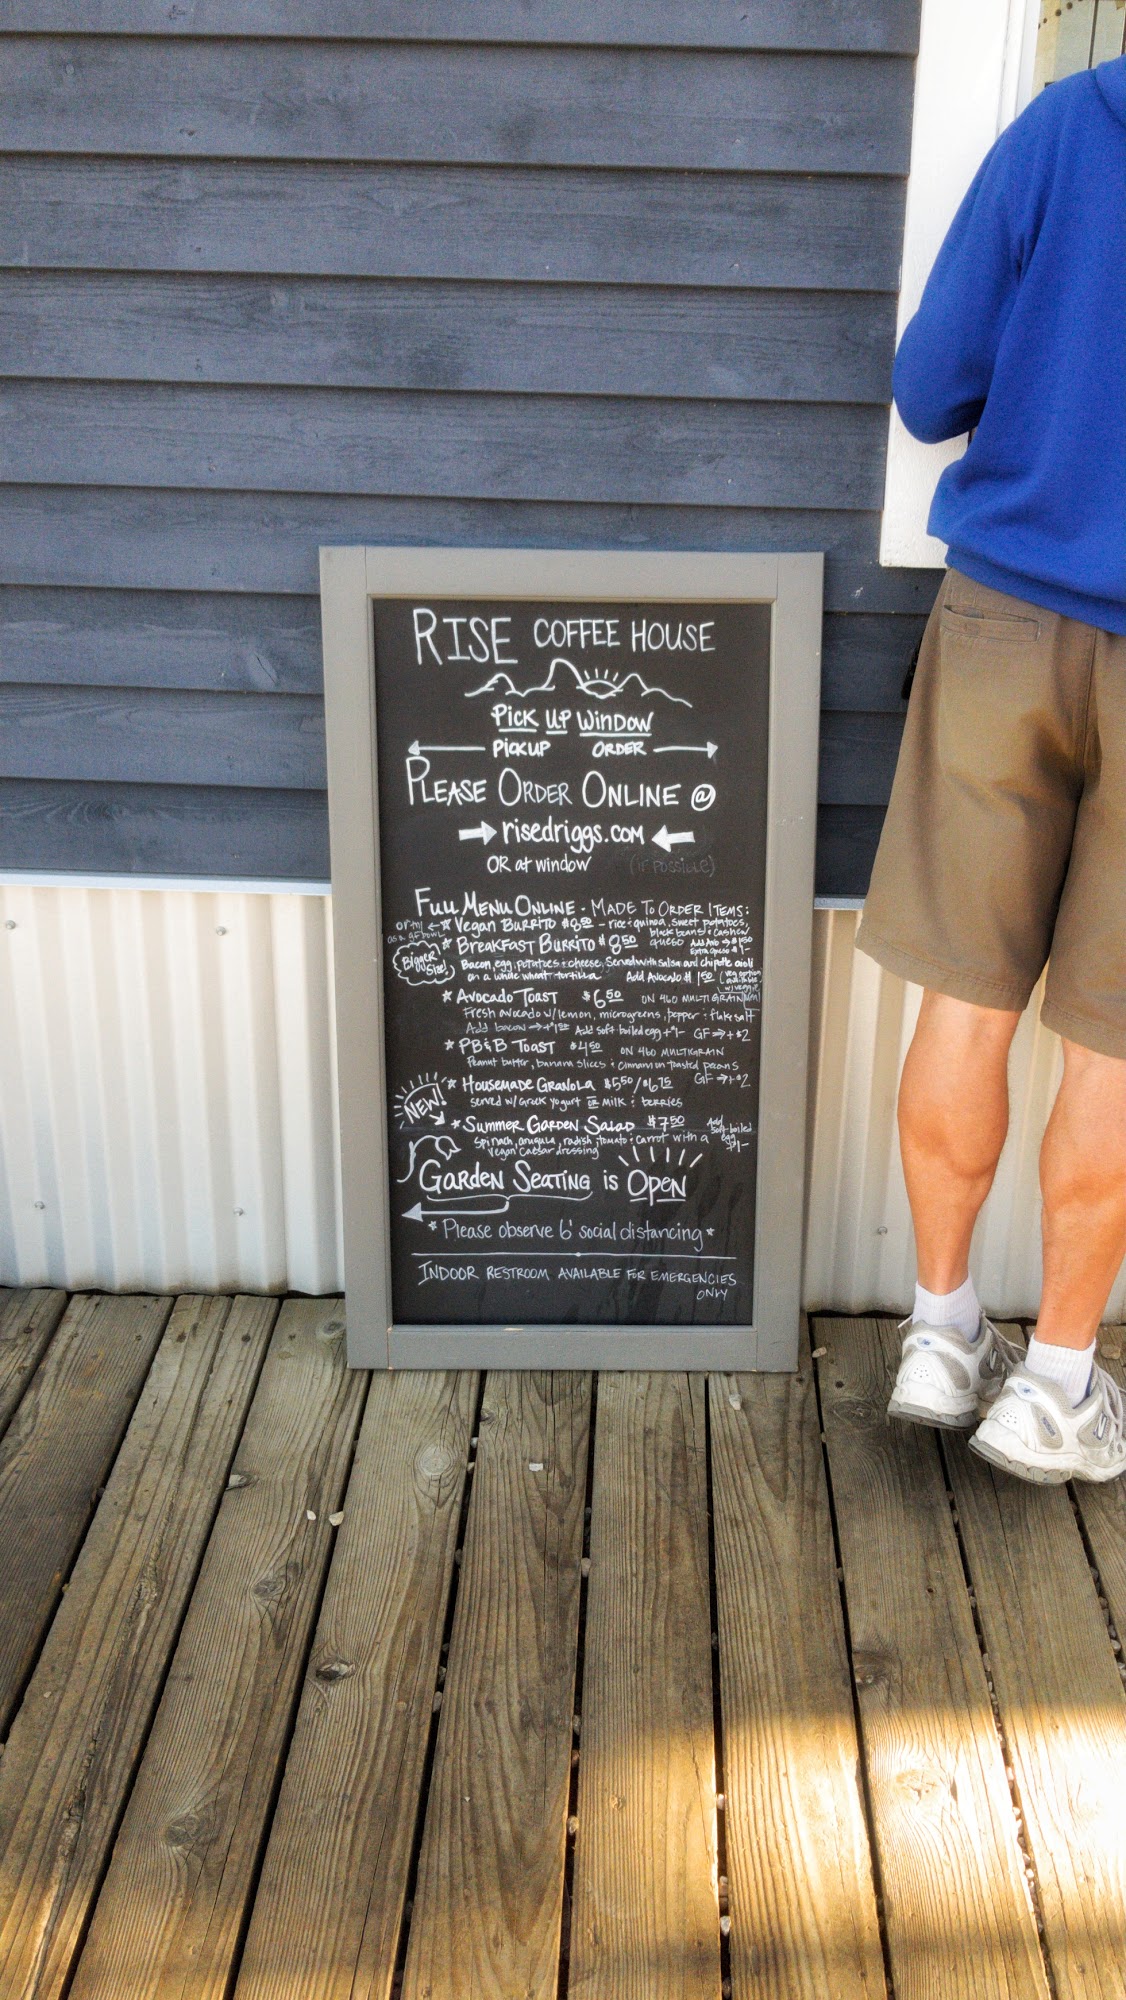 RISE COFFEE HOUSE
PICK UP WINDOW
PICKUP ORDER
PLEASE ORDER ONLINE @
risedriggs.com
OR at window (IF POSSIBLE)
FULL MENU ONLINE - MADE TO ORDER ITEMS:
VEGAN BURRITO $8.50 - rice & quinoa, sweet potatoes,
black beans & cashew
BREAKFAST BURRITO $8.50 queso Add Avo → $1.50
Extra Queso $1-
Bigger Size!
Bacon, egg, potatoes & cheese, Served with salsa and chipotle aioli
on a whole wheat tortilla Add Avocado $1.50
AVOCADO TOAST $6.50 ON 460 MULTIGRAIN
Fresh avocado w/lemon, microgreens, pepper & flake salt
Add bacon → Add soft boiled egg +$1- GF → +$2
PB&B TOAST $4.50 ON 460 MULTIGRAIN
Peanut butter, banana slices & cinnamon toasted pecans
GF → +$2
HOUSEMADE GRANOLA $5.50/$6.75
served w/ Greek yogurt OR milk & berries
NEW!
SUMMER GARDEN SALAD $7.50 Add soft boiled egg $1-
Spinach, arugula, radish, tomato & carrot with a
vegan caesar dressing
GARDEN SEATING is OPEN
* Please observe 6' social distancing *
INDOOR RESTROOM AVAILABLE FOR EMERGENCIES
ONLY